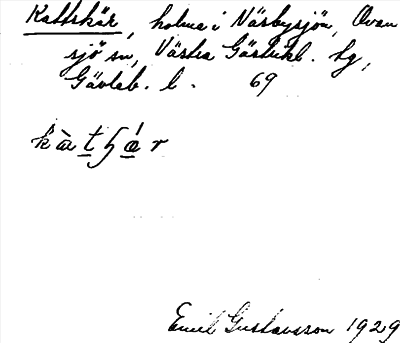 Kattskär, holme i Näsbysjön, Ovan
sjö sn, Västra Gästrikl. hg,
Gävleb. l. 69
kàtʃár
Emil Gustavsson 1929